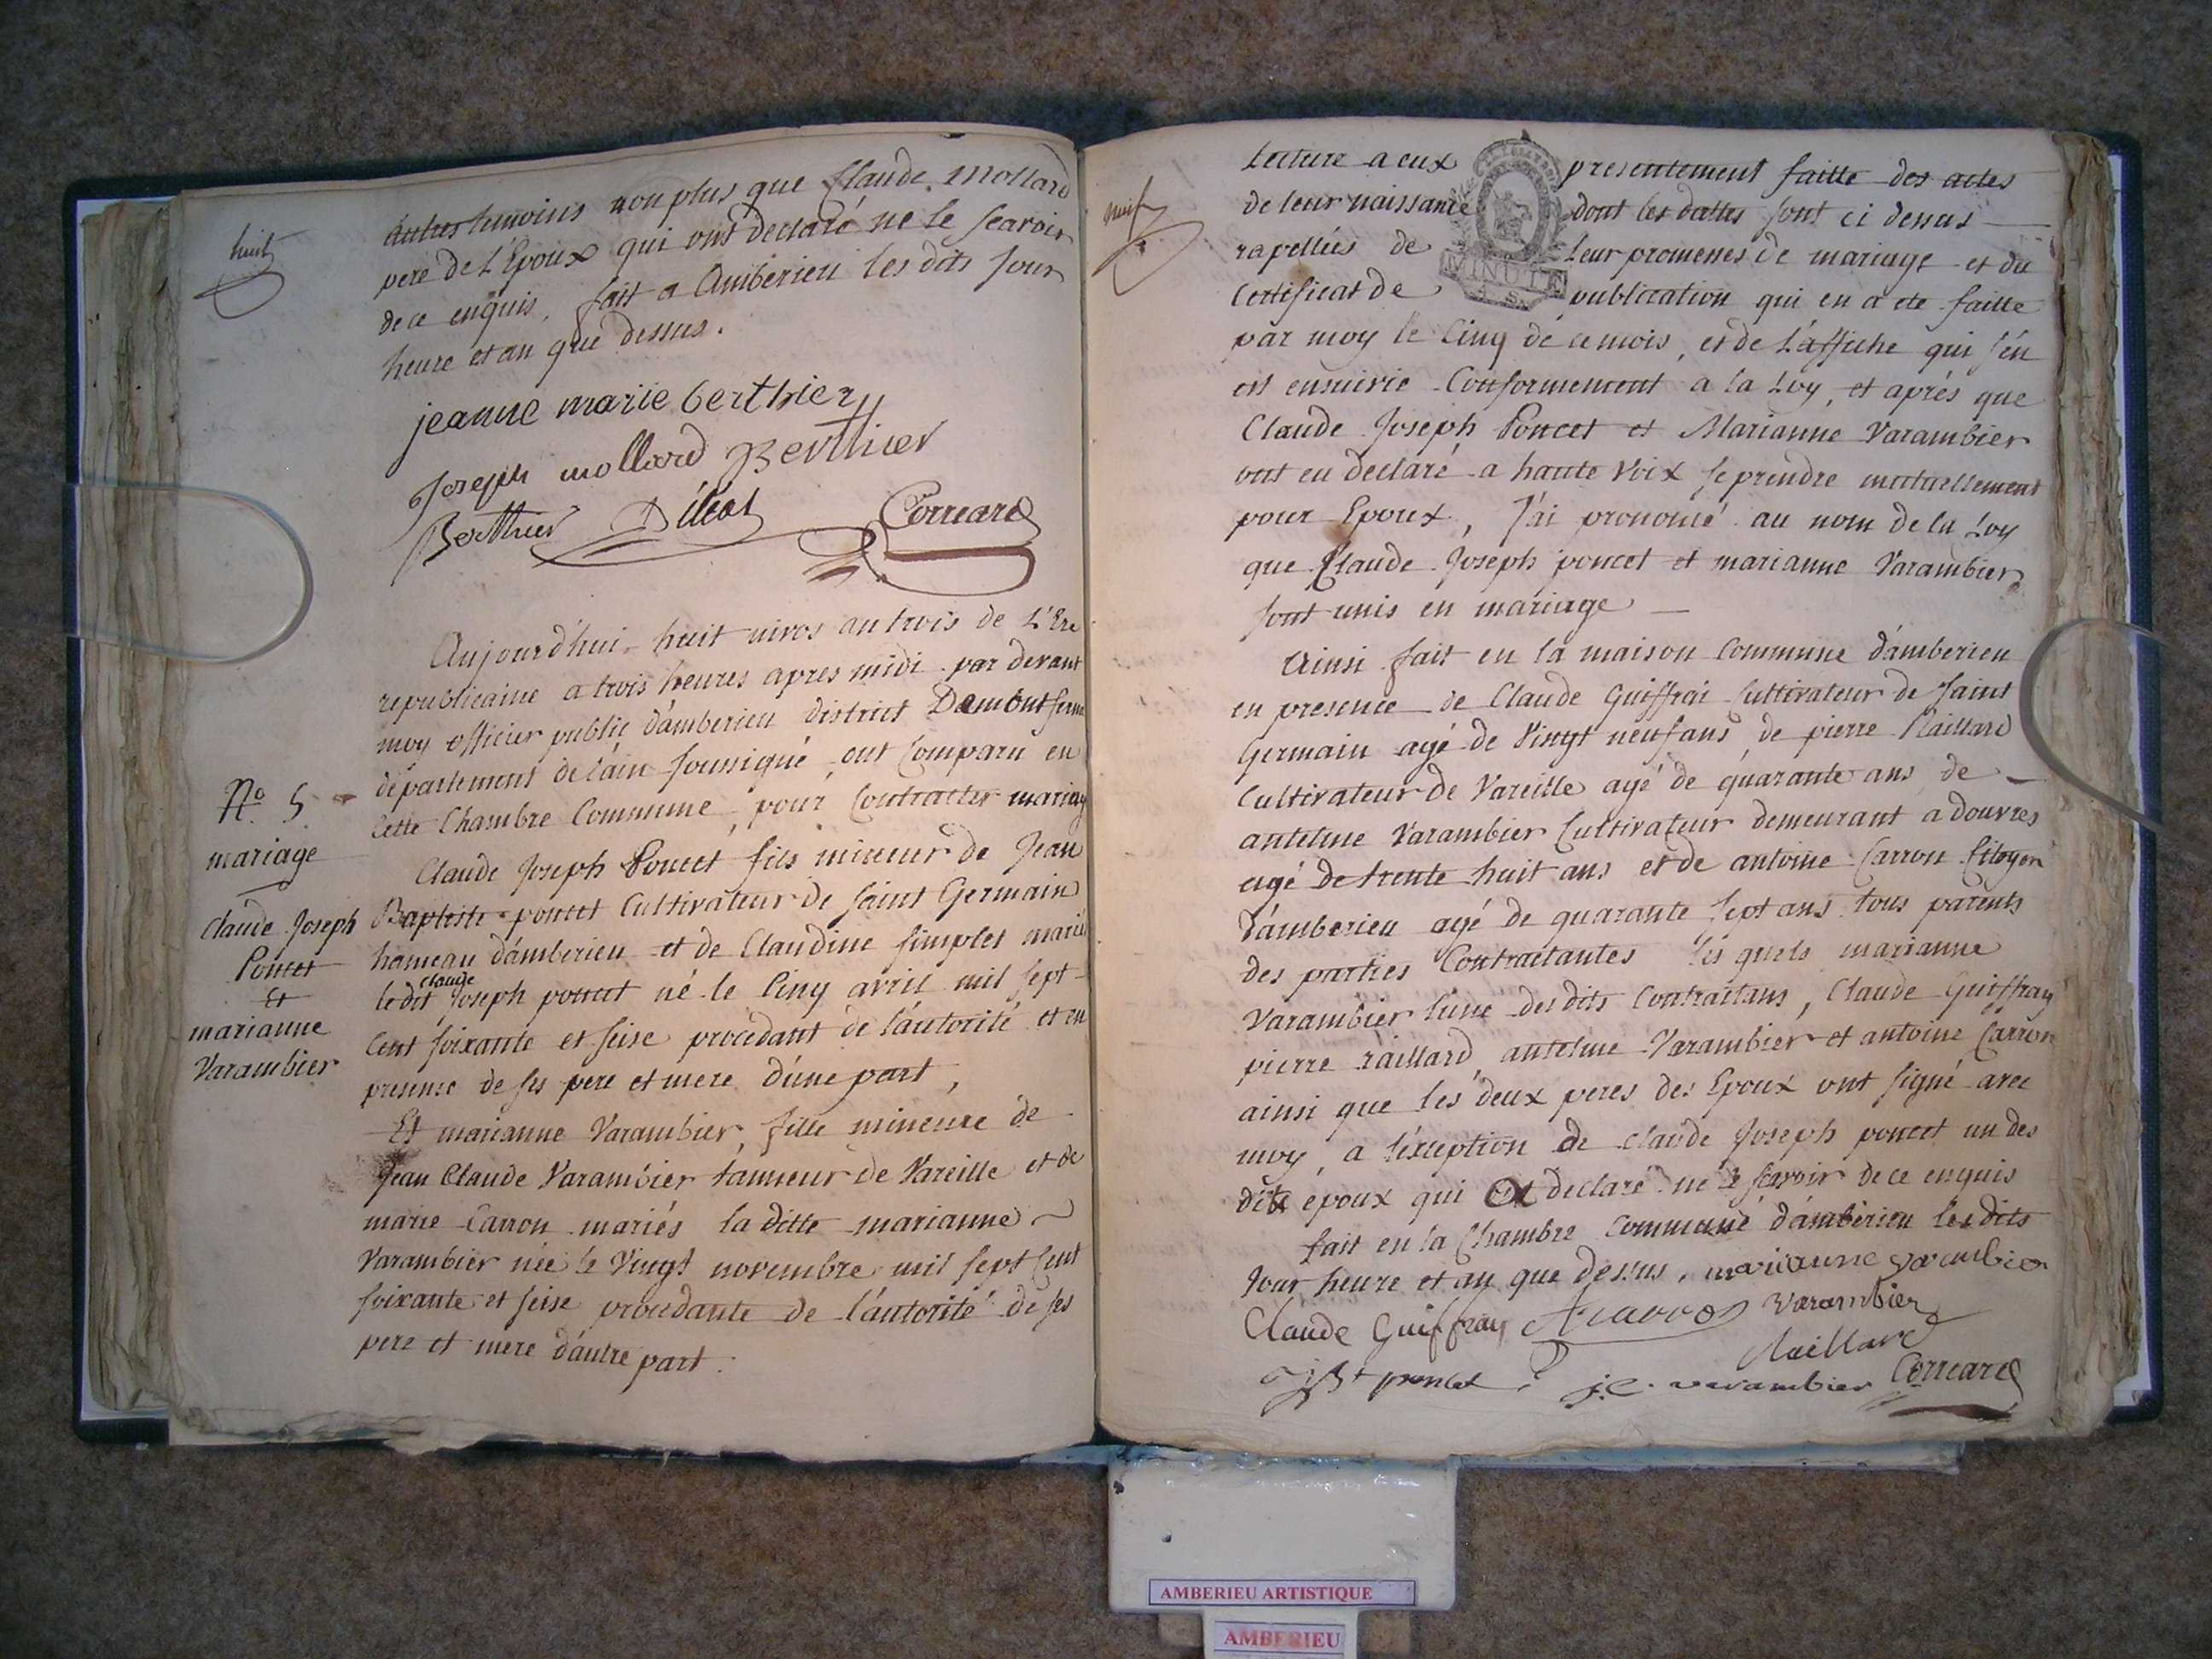 huit
autres temoins non plus que Claude Mollard
pere de L'Epoux qui ont declaré ne le scavoir
de ce enquis, fait a Amberieu les dits jour
heure et an que dessus.
jeanne marie berthier
Joseph mollard Berthier
Berthier Correard
Aujourd'hui huit nivos an trois de L'Ere
republicaine a trois heures apres midi par devant
moy officier public d'amberieu district Demontferm
departement de l'ain soussigné ont comparu en
cette Chambre Commune, pour Contracter mariag
No. 5
mariage
Claude Joseph
Poncet
Et
marianne
Varambier
Claude Joseph Poncet fils mineur de Jean
Baptiste poncet Cultivateur de saint Germain
hameau d'amberieu et de Claudine simplet mariés
claude
le dit Joseph poncet né le Cinq avril mil sept
Cent soixante et seise procedant de l'autorité et en
presence de ses pere et mere d'une part,
Et marianne Varambier, fille mineure de
Jean Claude Varambier tanneur de Vareille et de
marie Carron mariés la ditte marianne
Varambier née le Vingt novembre mil sept Cent
soixante et seise procedante de l'autorité de ses
pere et mere d'autre part.
neuf
Lecture a eux presentement faitte des actes
de leur naissance dont les dattes sont ci dessus
rapellées de leur promesses de mariage et du
Certificat de publication qui en a eté faitte
par moy le Cinq de ce mois, et de L'affiche qui s'en
est ensuivie Conformement a la Loy, et aprés que
Claude Joseph Poncet et Marianne Varambier
ont eu declaré a haute Voix se prendre mutuellement
pour Epoux, J'ai prononcé au nom de la Loy
que Claude Joseph poncet et marianne Varambier
sont unis en mariage
Ainsi fait en la maison Commune d'amberieu
en presence de Claude Guiffrai Cultivateur de saint
Germain agé de Vingt neuf ans, de pierre Raillard
Cultivateur de Vareille agé de quarante ans de
antelme Varambier Cultivateur demeurant a douvres
agé de trente huit ans et de antoine Carron Citoyen
d'amberieu agé de quarante sept ans tous parents
des parties Contractantes les quels marianne
Varambier l'une des dits Contractans, Claude Guiffray
pierre raillard, antelme Varambier et antoine Carron
ainsi que les deux peres des Epoux ont signé avec
moy, a l'exception de claude Joseph poncet un des
dits epoux qui a declaré ne le scavoir de ce enquis
fait en la Chambre Commune d'amberieu les dits
Jour heure et an que dessus, mariianne varambier
Claude Guiffray Varambier
Raillard
J Bt poncet j.C. varambier Correard
AMBERIEU ARTISTIQUE
AMBERIEU